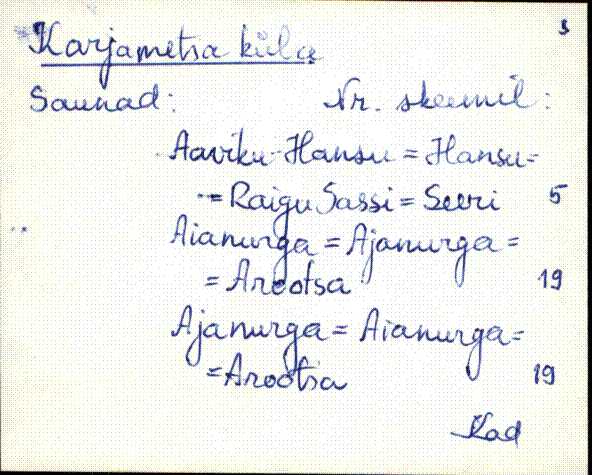 3
Karjametsa küla
Saunad: Nr. skeemil:
Aaviku-Hansu = Hansu =
= Raigu Sassi = Seeri 5
Aianurga = Ajanurga =
= Arootsa 19
Ajanurga = Aianurga =
= Arootsa 19
Kad